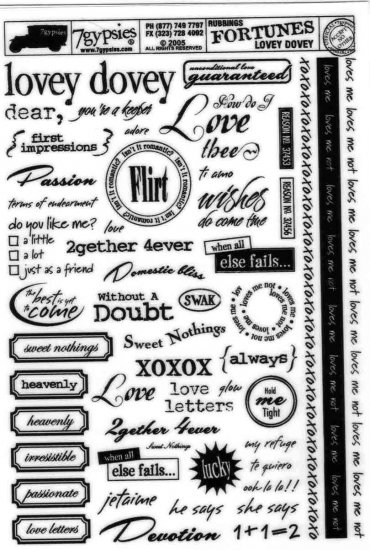 7gypsies
7gypsies
www.7gypsies.com
PH (877) 749 7797
FX (323) 728 4092
© 2005
ALL RIGHTS RESERVED
RUBBINGS
FORTUNES
LOVEY DOVEY
lovey dovey
unconditional love
guaranteed
dear,
you're a keeper
adore
How do I
Love
thee
{first
impressions}
REASON NO. 37453
REASON NO. 37456
Passion
isn't it romantic? isn't it romantic? isn't it romantic? isn't it romantic?
Flirt
ti amo
wishes
do come true
terms of endearment
do you like me?
a little
a lot
just as a friend
love
2gether 4ever
when all
else fails...
Domestic bliss
the best is yet
to come
Without A
Doubt
SWAK
loves me not loves me loves me not loves me
Sweet Nothings
sweet nothings
heavenly
heavenly
irresistible
passionate
love letters
xoxox
{always}
Love
love
letters
glow
Hold
me
Tight
2gether 4ever
Sweet Nothings
my refuge
when all
else fails...
lucky
te quiero
ooh la la!!
jetaime
he says
she says
Devotion
1+1=2
XOXOXOXOXOXOXOXOXOXOXOXOXOXOXO
loves me loves me not loves me loves me not loves me loves me not
loves me loves me not loves me loves me not loves me loves me not